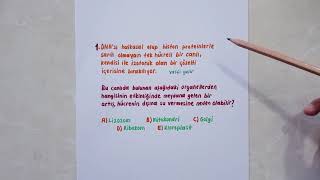 1. DNA'sı halkasal olup histon proteinlerle
sarılı olmayan tek hücreli bir canlı,
kendisi ile izotonik olan bir çözelti
içerisine bırakılıyor.
Bu canlıda bulunan aşağıdaki organellerden
hangisinin etkinliğinde meydana gelen bir
artış, hücrenin dışına su vermesine neden olabilir?
A) Lizozom B) Mitokondri C) Golgi
D) Ribozom E) Kloroplast